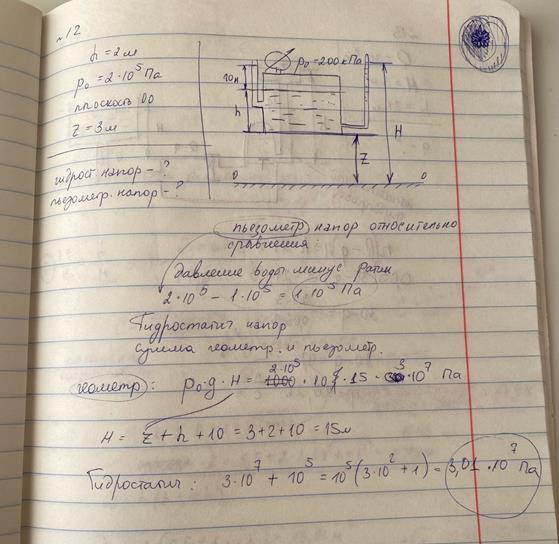 №12
h = 2м
p₀ = 2·10⁵ Па
плоскость 00
Z = 3м
гидрост напор - ?
пьезометр. напор - ?
p₀ = 200 кПа
10м
h
H
Z
0 0
пьезометр напор относительно
сравнения:
давление воды минус Pатм
2·10⁵ - 1·10⁵ = 1·10⁵ Па
Гидростатич напор
сумма геометр. и пьезометр.
геометр: p₀·g·H = 2·10⁵ · 10 · 15 = 3·10⁷ Па
H = Z + h + 10 = 3+2+10 = 15м
Гидростатич: 3·10⁷ + 10⁵ = 10⁵(3·10² + 1) = 3,01·10⁷ Па